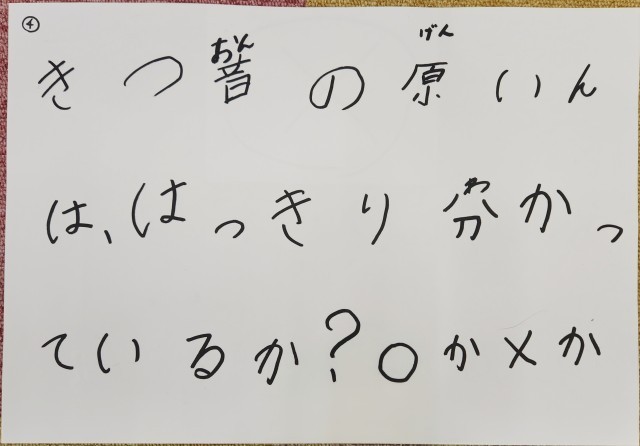 ④
きつ音の原いん
おん
げん
は、はっきり分かっ
わ
ているか?○か×か